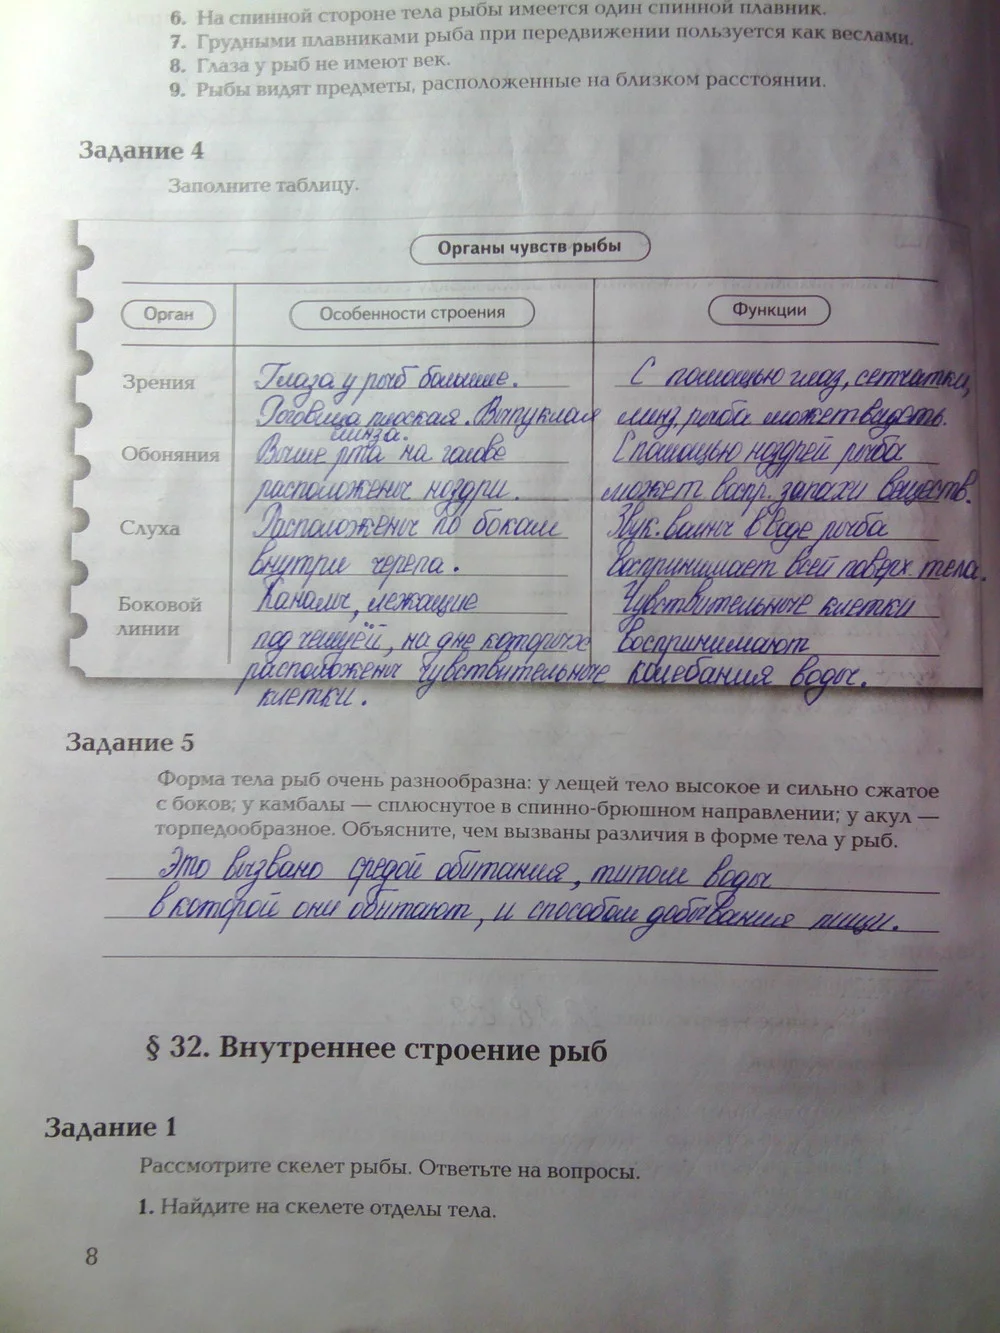 6. На спинной стороне тела рыбы имеется один спинной плавник.
7. Грудными плавниками рыба при передвижении пользуется как веслами.
8. Глаза у рыб не имеют век.
9. Рыбы видят предметы, расположенные на близком расстоянии.
Задание 4
Заполните таблицу.
Органы чувств рыбы
Орган
Особенности строения
Функции
Зрения
Глаза у рыб большие.
Роговица плоская. Выпуклая
линза.
С помощью глаз, сетчатки,
линз, рыба может видеть.
Обоняния
Выше рта на голове
расположены ноздри.
С помощью ноздрей рыба
может воспр. запахи веществ.
Слуха
Расположены по бокам
внутри черепа.
Звук. волны в воде рыба
воспринимает всей поверх. тела.
Боковой
линии
Каналы, лежащие
под чешуёй, на дне которых
расположены чувствительные
клетки.
Чувствительные клетки
воспринимают
колебания воды.
Задание 5
Форма тела рыб очень разнообразна: у лещей тело высокое и сильно сжатое
с боков; у камбалы — сплюснутое в спинно-брюшном направлении; у акул —
торпедообразное. Объясните, чем вызваны различия в форме тела у рыб.
Это вызвано средой обитания, типом воды
в которой они обитают, и способом добывания пищи.
§ 32. Внутреннее строение рыб
Задание 1
Рассмотрите скелет рыбы. Ответьте на вопросы.
1. Найдите на скелете отделы тела.
8